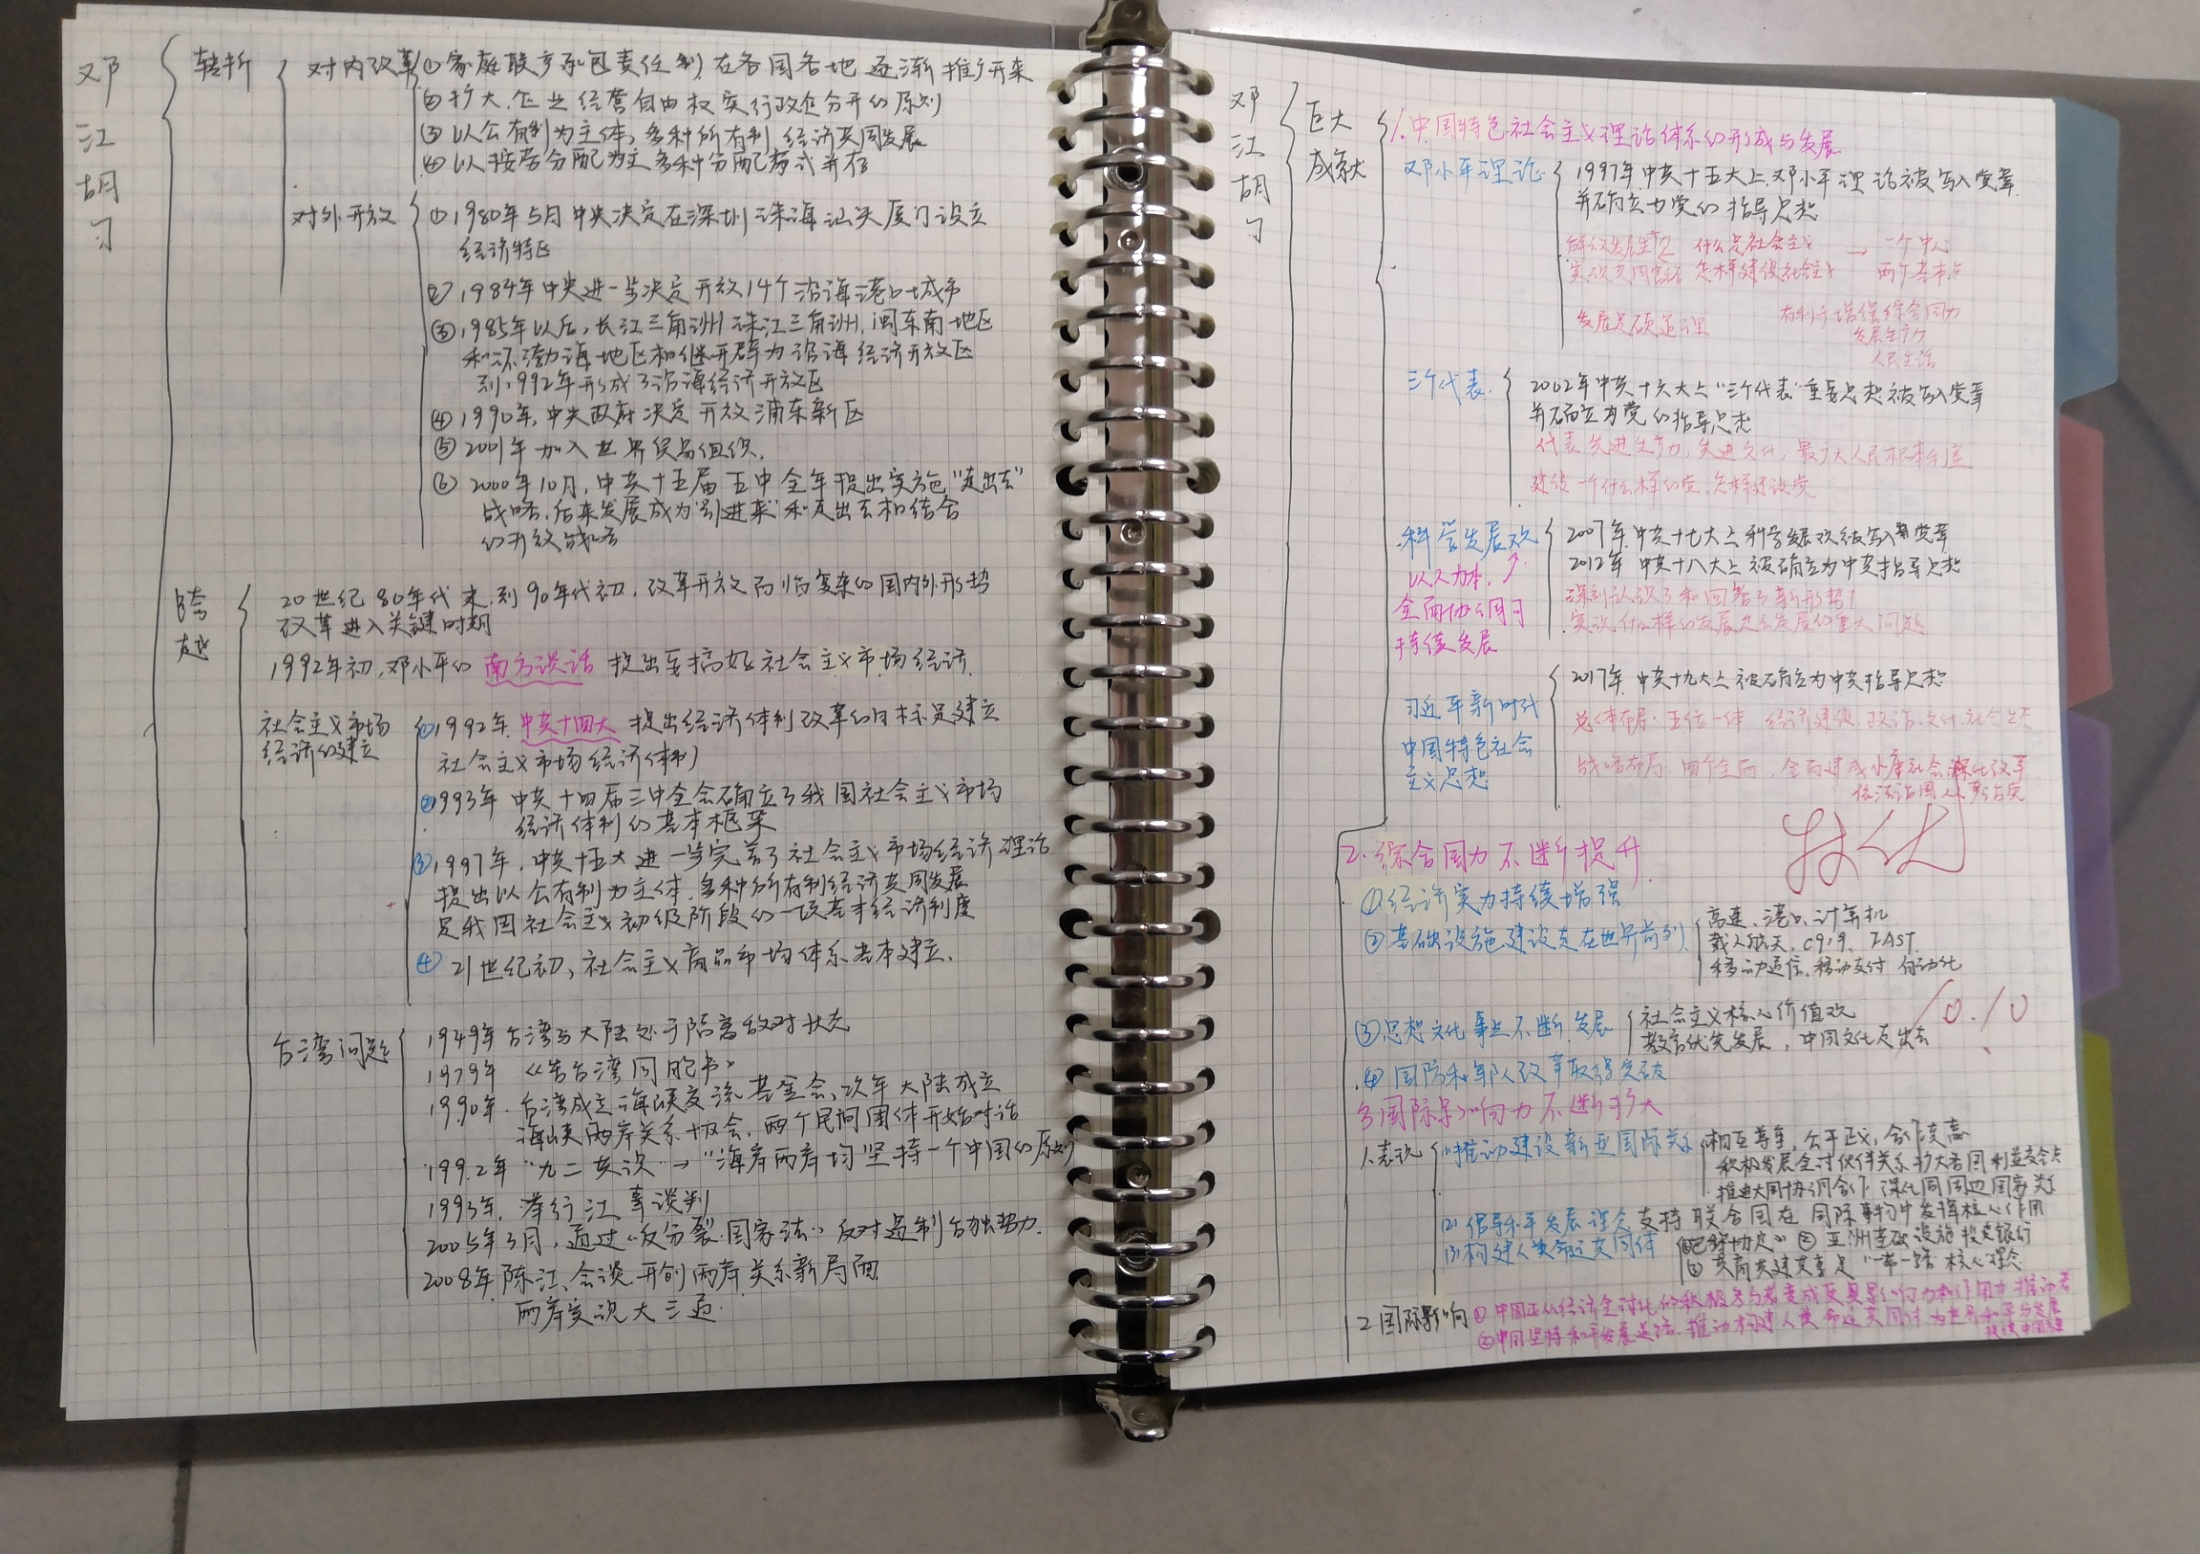 邓江胡习
转折
对内改革
①家庭联产承包责任制,在各国各地逐渐推广开来
②扩大企业经营自由权实行政企分开的原则
③以公有制为主体,多种所有制经济共同发展
④以按劳分配为主多种分配方式并存
对外开放
①1980年5月中央决定在深圳珠海汕头厦门设立
经济特区
②1984年中央进一步决定开放14个沿海港口城市
③1985年以后,长江三角洲珠江三角洲,闽东南地区
和环渤海地区相继开辟为沿海经济开放区
到1992年形成了沿海经济开放区
④1990年,中央政府决定开放浦东新区
⑤2001年加入世界贸易组织.
⑥2000年10月,中共十五届五中全年提出实施“走出去”
战略,后来发展成为“引进来”和走出去相结合
的开放战略
跨越
20世纪80年代末到90年代初,改革开放面临复杂的国内外形势
改革进入关键时期
1992年初,邓小平的南方谈话提出要搞好社会主义市场经济.
社会主义市场
经济的建立
①1992年,中共十四大提出经济体制改革的目标是建立
社会主义市场经济体制
②1993年 中共十四届三中全会确立了我国社会主义市场
经济体制的基本框架
③1997年,中共十五大进一步完善了社会主义市场经济理论
提出以公有制为主体,多种所有制经济共同发展
是我国社会主义初级阶段的一项基本经济制度
④21世纪初,社会主义商品市场体系基本建立.
台湾问题
1949年台湾与大陆处于隔离敌对状态
1979年《告台湾同胞书》
1990年.台湾成立海峡交流基金会,次年大陆成立
海峡两岸关系协会,两个民间团体开始对话
1992年“九二共识”→“海岸两岸均坚持一个中国的原则
1993年,举行汪辜谈判
2005年3月,通过《反分裂国家法》反对遏制台独势力.
2008年陈江会谈开创两岸关系新局面
两岸实现大三通.
邓江胡习
巨大成就
1.中国特色社会主义理论体系的形成与发展
邓小平理论
1997年中共十五大上,邓小平理论被写入党章.
并确立为党的指导思想
解放发展生产力 什么是社会主义 → 一个中心
实现共同富裕 怎样建设社会主义 两个基本点
发展是硬道理 有利于增强综合国力
发展生产力
人民生活
三个代表.
2002年中共十六大上“三个代表”重要思想被写入党章
并确立为党的指导思想
代表先进生产力,先进文化,最广大人民根本利益
建设一个什么样的党,怎样建设党
科学发展观
以人为本,
全面协调可
持续发展
2007年中共十七大上科学发展观被写入党章
2012年 中共十八大上被确立为中共指导思想
深刻认识了和回答了新形势下
实现什么样的发展怎么发展的重大问题
习近平新时代
中国特色社会
主义思想
2017年中共十九大上被确立为中共指导思想
总体布局:五位一体 经济建设 政治.文化.社会.生态
战略布局:四个全面,全面建成小康社会,深化改革
依法治国从严治党
2.综合国力不断提升
①经济实力持续增强
②基础设施建设走在世界前列
高速、港口、计算机
载人航天,C919,FAST,
移动通信,移动支付 自动化
③思想文化事业不断发展
社会主义核心价值观
教育优先发展,中国文化走出去
10.10
④国防和军队改革取得突破
3国际影响力不断扩大
1.表现
(1)推动建设新型国际关系
相互尊重,公平正义,合作共赢
积极发展全球伙伴关系扩大各国利益交合点
推进大国协调合作 深化同周边国家关系
(2)倡导和平发展理念 支持联合国在国际事物中发挥核心作用
(3)构建人类命运共同体
《巴黎协定》②亚洲基础设施投资银行
③共商共建共享是“一带一路”核心理念
2国际影响
①中国正从经济全球化的积极参与者变成更具影响力和作用力推动者
②中国坚持和平发展道路,推动构建人类命运共同体为世界和平与发展